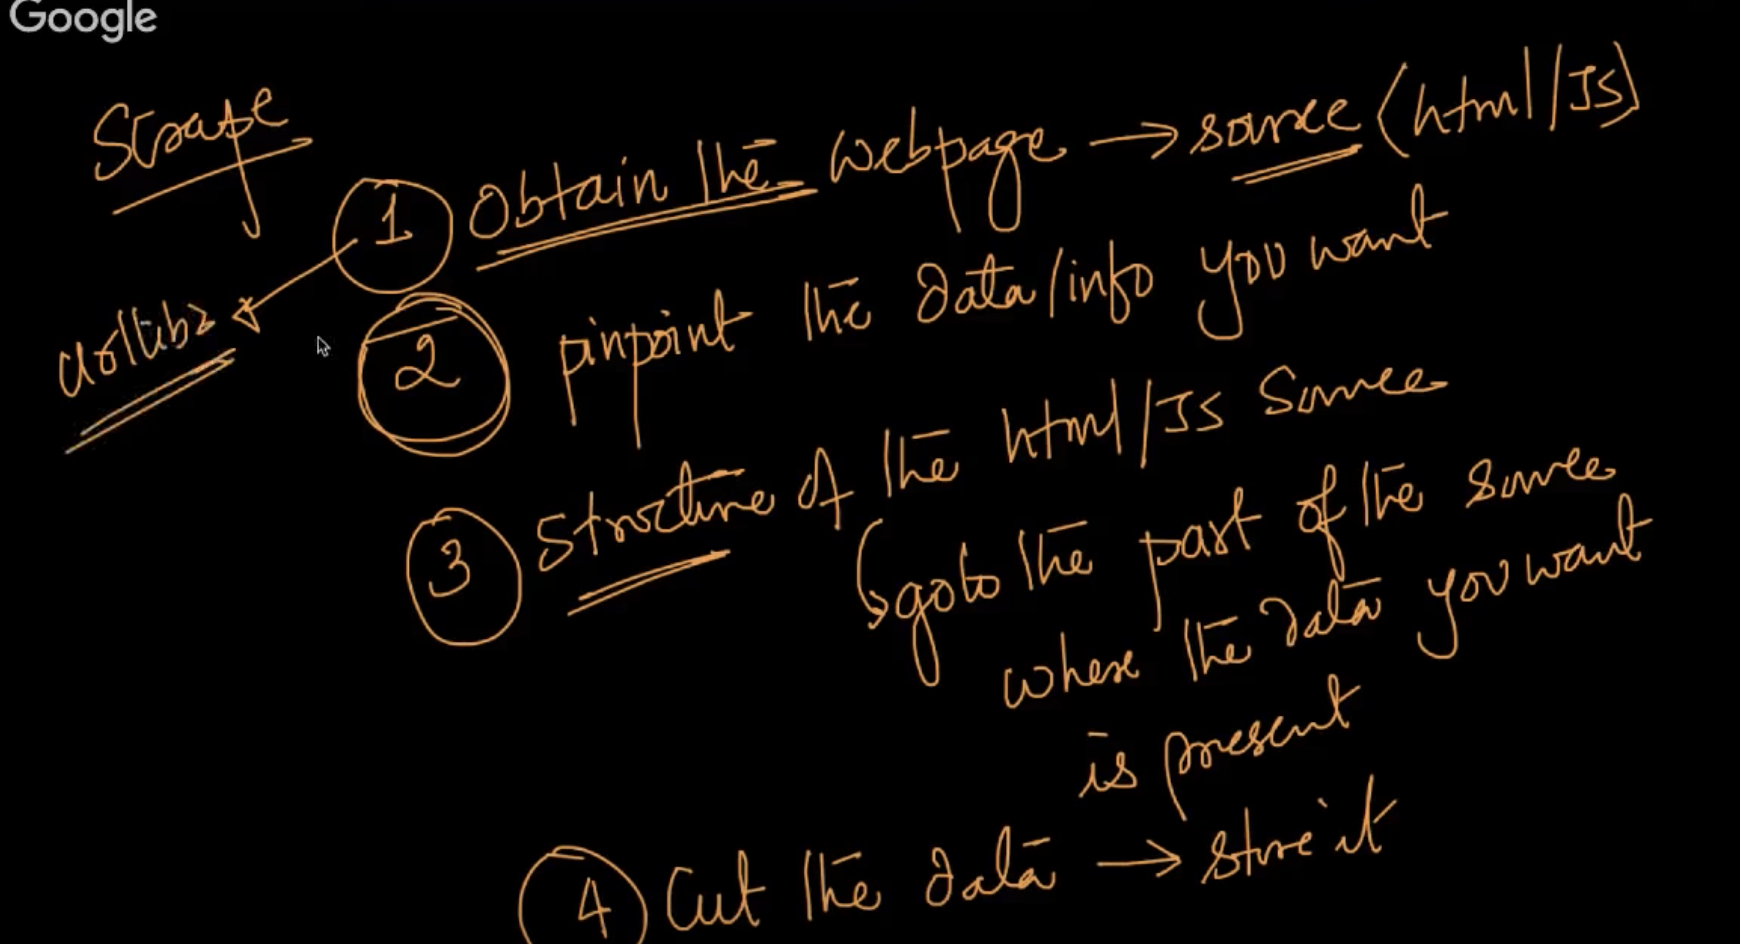 Google
Scrape
1 Obtain the webpage → source (html/JS)
urllib2
2 pinpoint the data/info you want
3 Structure of the html/JS Source
goto the part of the source
where the data you want
is present
4 Cut the data → store it